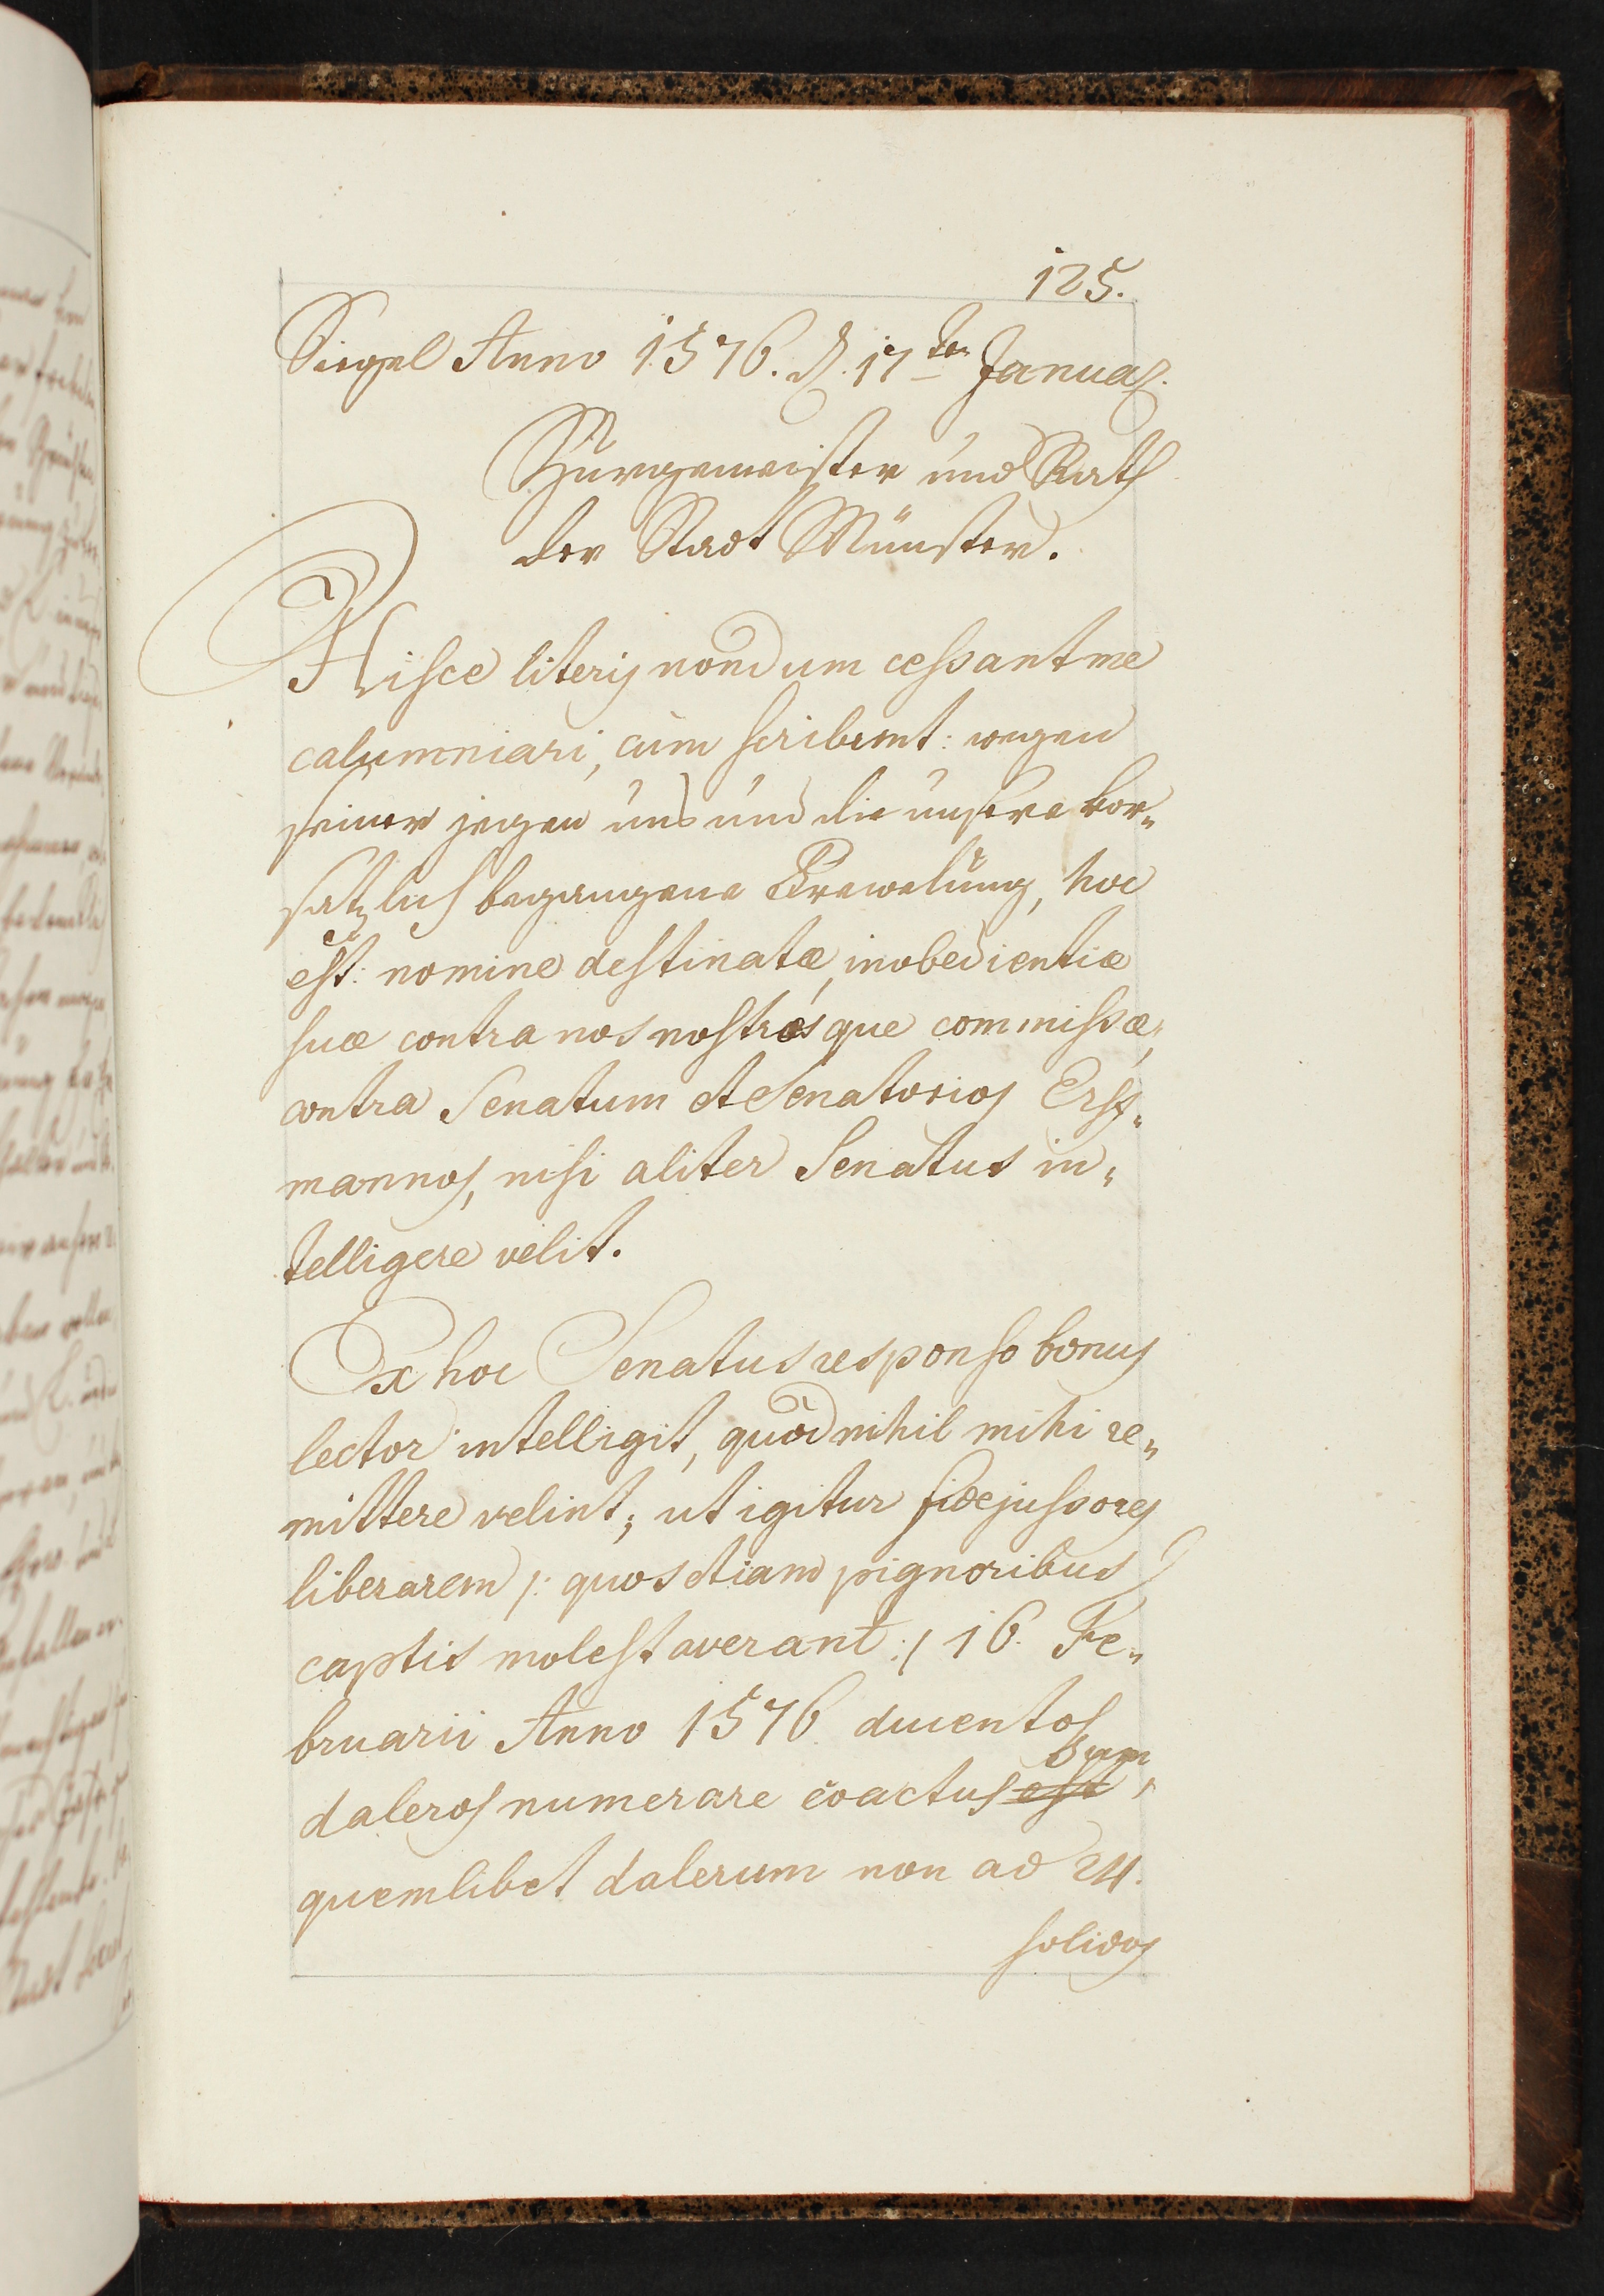 125.
Siegel Anno 1576. d. 17ten Januar.
Bürgemeister und Rath
der Stadt Münster.
Hisce literis nondum cessant me
calumniari, cùm scribunt: wegen
seiner jegen uns und die unsere vor„
satzlich begangene Frewelung, hoc
est: nomine destinatæ, inobedientiæ
suæ contra nos nostrosque commissæ,
contra Senatum et Senatorios
mannos, nisi aliter Senatus in„
telligere velit.
Ex hoc Senatus responso bonus
lector intelligit, quòd nihil mihi re„
mittere velint; ut igitur fidejussores
liberarem /: quos etiam pignoribus
captis molestaverant :/ 16. Fe„
bruarii Anno 1576 ducentos
daleros numerare coactus est sum,
quemlibet dalerum non ad 24.
solidos